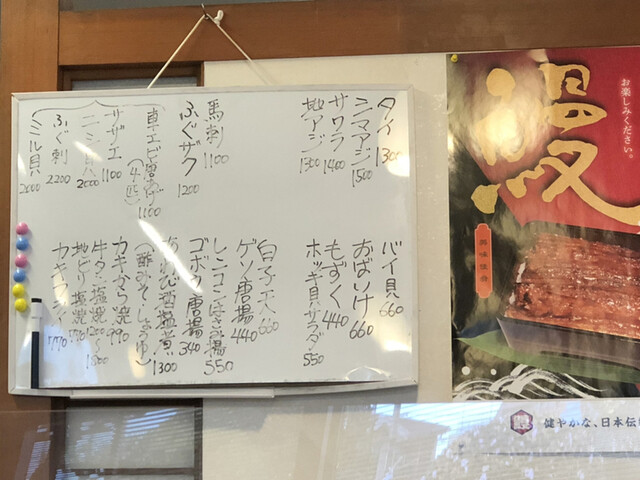 タイ 1300
シマアジ 1500
サワラ 1400
地アジ 1300
馬刺 1100
ふぐザク 1200
車エビ唐あげ(4匹) 1100
サザエ 1100
2000
ふぐ刺 2200
ミル貝 2000
バイ貝 660
おばいけ 660
もずく 440
ホッキ貝サラダ 550
白子天 660
ゲソ唐揚 440
レンコンはさみ揚 550
ゴボウ唐揚 340
あわび酒塩煮 1300
(酢みそ・しょうゆ)
カキから焼 990
牛タン塩焼 1200~1500
地ビリ塩焼 770
カキフライ 770
お楽しみください。
鰻
興味佳肴
健やかな、日本伝